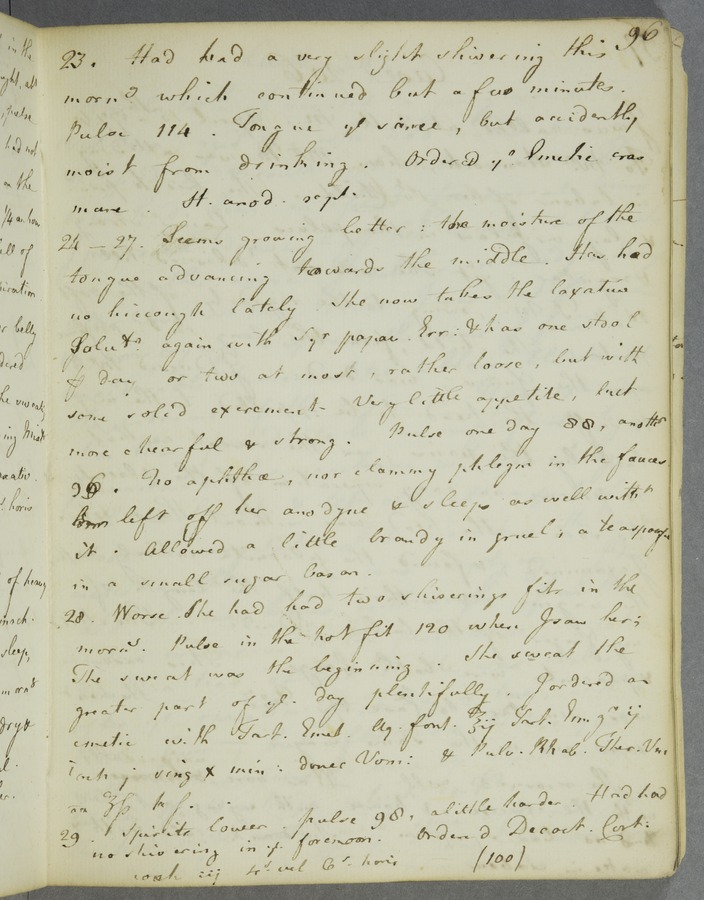 96
23. Had had a very slight shivering this
morng which continued but a few minutes.
Pulse 114. Tongue ye same, but accidently
moist from drinking. Ordered ye Emetic cras
mane. St. anod. rept.
24 – 27. Seems growing better: the moisture of the
tongue advancing towards the middle. Has had
no hiccough lately. She now takes the laxative
Solutn again with Syr papav. Err: & has one stool
day or two at most, rather loose, but with
some solid excrement. Very little appetite, but
more chearful & strong. Pulse one day 88, another
96. No aphthæ, nor clammy phlegm in the fauces
left off her anodyne & sleeps as well witht
it. Allowed a little brandy in gruel; a teaspoonful
in a small sugar bason.
28. Worse. She had had two shiverings fits in the
morng. Pulse in the hot fit 120 when I saw her;
The sweat was the beginning. She sweat the
greater part of ye day plentifully. I ordered an
emetic with Tart. Emet. Aq. font. ℥ij Tart. Em. gr ij
sing x min: donec Vom: & Pulv. Rhab. Ther. Ven
aa ʒß
29. Spirits lower. pulse 98, a little harder. Had had
no shivering in ye forenoon. Ordered Decoct. Cort:
coch iij 4s. vel 6s. horis (100)
in the
had not
on the
1/4 an hour
of
belly
horis
of heavy
sleep,
morng